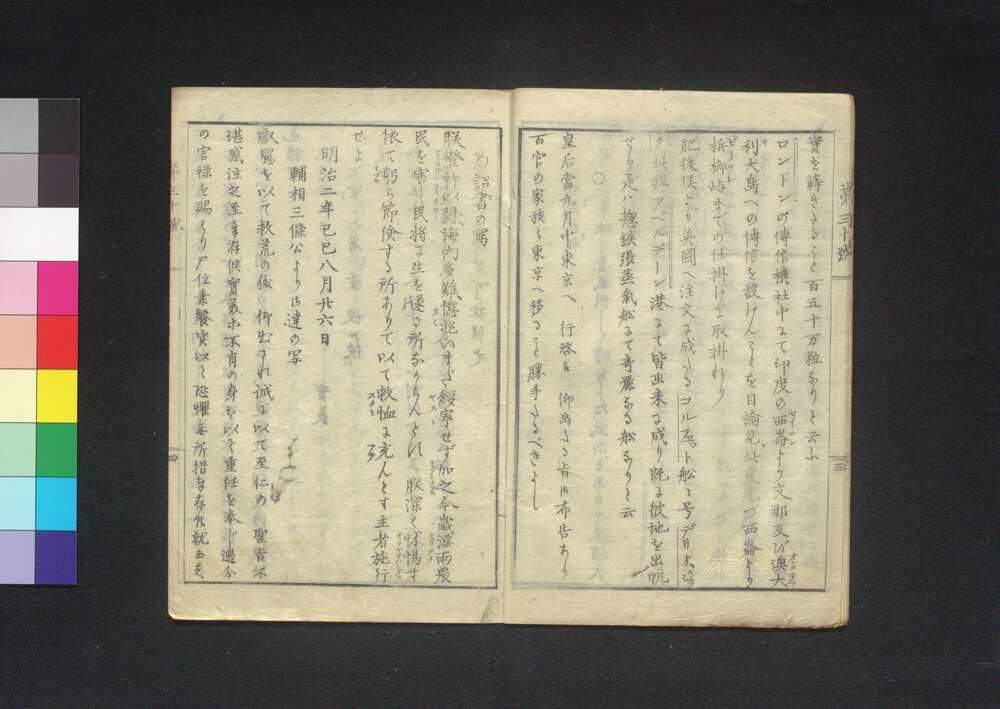 第三十號
實を蒔きたること百五十万粒なりと云ふ
ロンドンの傳信機社中にて印度の西崙より支那及び澳大
利大島への傳信を設けんことを目論見 つ西崙より
檳榔嶼までの仕掛けに取掛れり
肥後侯より英國へ注文に成たるコルフェット船は号
アベルデーン港にて皆出来に成り既に彼地を出帆
せり是ハ總鉄張蒸氣船にて奇麗なる船なりと云
○
皇后當九月中東京へ 行啓被 仰出たる旨御布告あり
百官の家族も東京へ移ること勝手たるべきよし
三
○詔書の写
朕登祚以降海内多難億兆いまだ綏寧せず加之今歳淫雨農
民を害し民將に生を遂る所なからんとす 朕深く怵惕す
依て躬ら節儉する所ありて以て救恤に充んとす主者施行
せよ
明治二年己巳八月廿六日
輔相三條公より御達の写
叡慮を以て救荒の儀 仰出され誠に以て至仁の 聖旨不
堪感泣之至奉存候實美不肖の身を以て重任を奉じ過分
の官禄を賜はり尸位素餐実以て恐懼無所措奉存候就而は
四